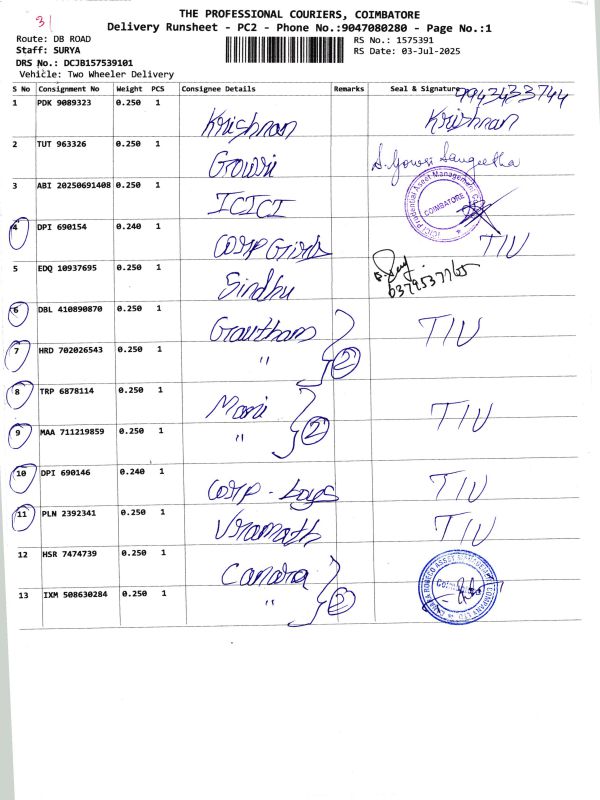 31
THE PROFESSIONAL COURIERS, COIMBATORE
Delivery Runsheet - PC2 - Phone No.:9047080280 - Page No.:1
Route: DB ROAD
RS No.: 1575391
Staff: SURYA
RS Date: 03-Jul-2025
DRS No.: DCJB157539101
Vehicle: Two Wheeler Delivery
S No Consignment No Weight PCS Consignee Details Remarks Seal & Signature 9943433744
1 PDK 9089323 0.250 1 Krishnan Krishnan
2 TUT 963326 0.250 1 Gowri S. Gowri Sangeetha
3 ABI 20250691408 0.250 1 ICICI ICICI Prudential Asset Management COIMBATORE
4 DPI 690154 0.240 1 Corp TIV
5 EDQ 10937695 0.250 1 Sindhu
6 DBL 410890870 0.250 1 Gautham TIV
7 HRD 702026543 0.250 1 " 2
8 TRP 6878114 0.250 1 Mani TIV
9 MAA 711219859 0.250 1 " 2
10 DPI 690146 0.240 1 Corp - TIV
11 PLN 2392341 0.250 1 TIV
12 HSR 7474739 0.250 1 Canara CANARA ROBECO ASSET MANAGEMENT COMPANY LTD.
13 IXM 508630284 0.250 1 " 2